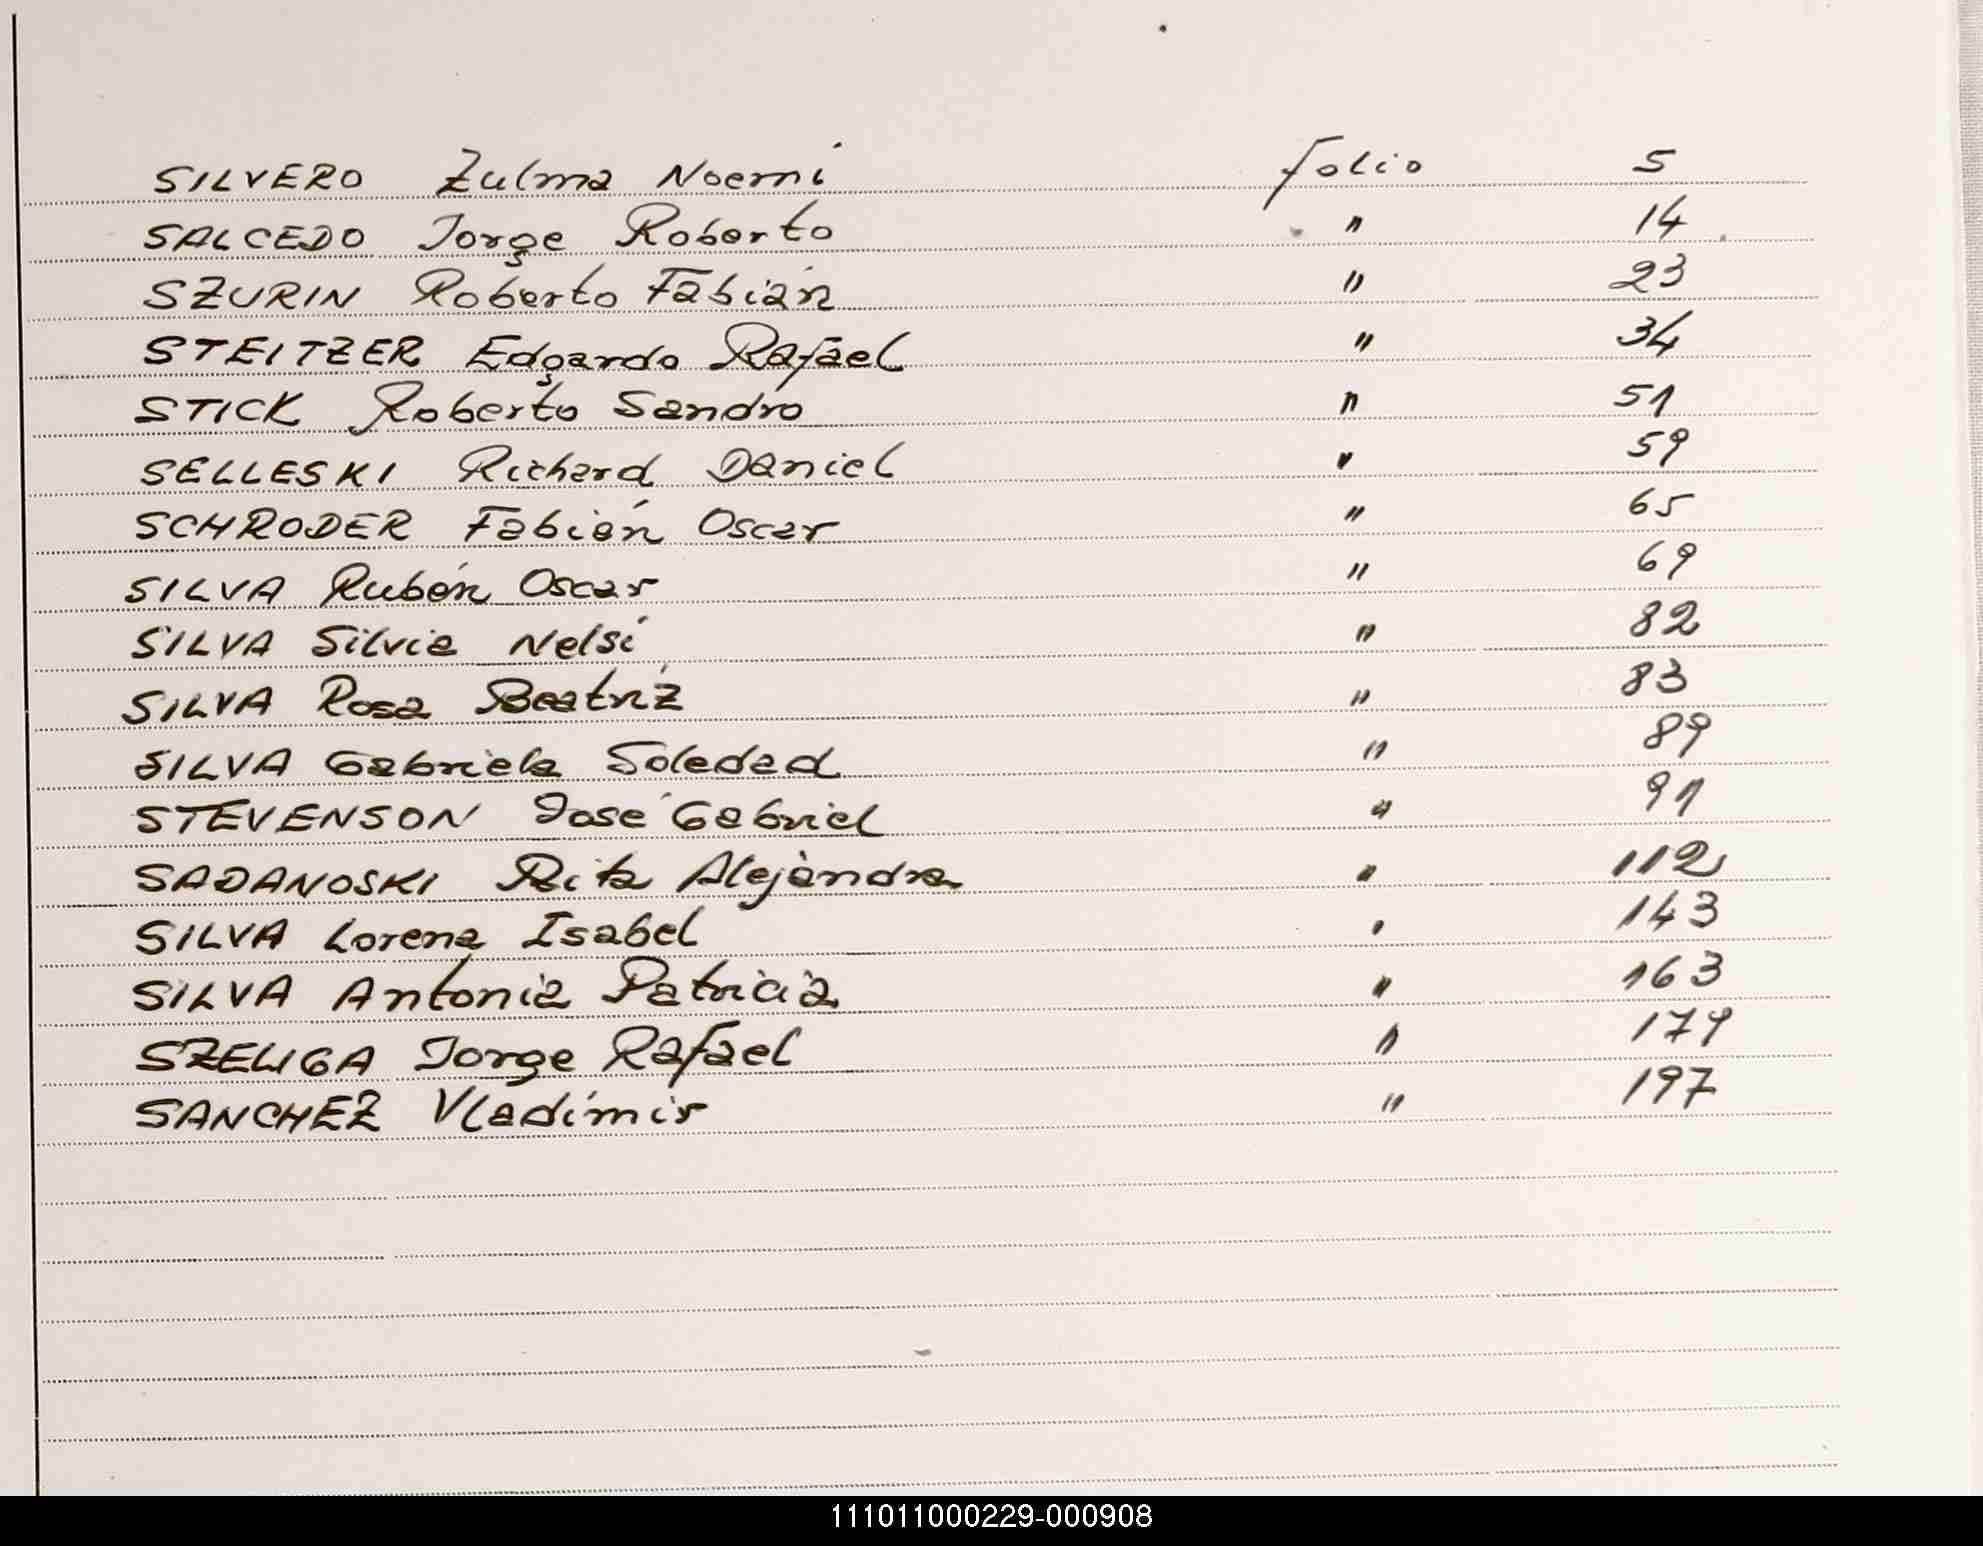 SILVERO Zulma Noemí folio 5
SALCEDO Jorge Roberto " 14
SZURIN Roberto Fabián " 23
STEITZER Edgardo Rafael " 34
STICK Roberto Sandro " 51
SELLESKI Richard Daniel " 59
SCHRODER Fabián Oscar " 65
SILVA Rubén Oscar " 69
SILVA Silvia Nelsí " 82
SILVA Rosa Beatríz " 83
SILVA Gabriela Soledad " 89
STEVENSON José Gabriel " 91
SADANOSKI Rita Alejandra " 112
SILVA Lorena Isabel " 143
SILVA Antonia Patricia " 163
SZELIGA Jorge Rafael " 179
SANCHEZ Vladímir " 197
111011000229-000908